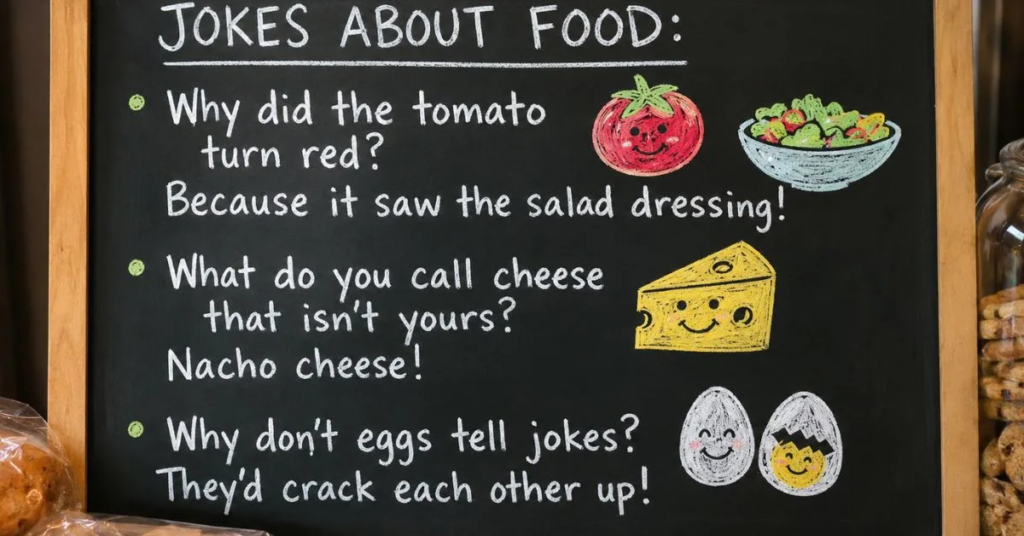 JOKES ABOUT FOOD:
Why did the tomato
turn red?
Because it saw the salad dressing!
What do you call cheese
that isn't yours?
Nacho cheese!
Why don't eggs tell jokes?
They'd crack each other up!